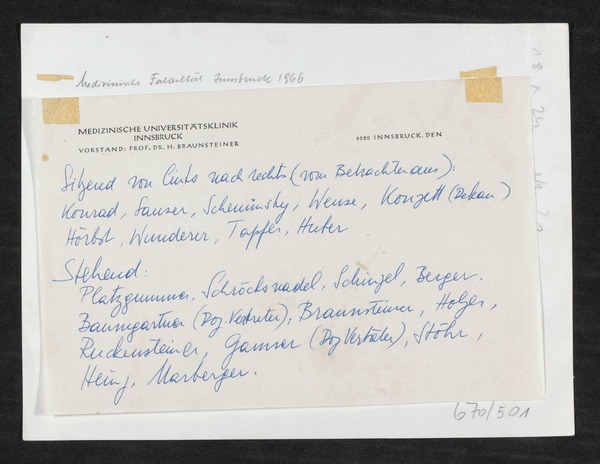 Medizinische Fakultät Innsbruck 1966
MEDIZINISCHE UNIVERSITÄTSKLINIK
INNSBRUCK
VORSTAND: PROF. DR. H. BRAUNSTEINER
6020 INNSBRUCK, DEN
Sitzend von links nach rechts (vom Betrachter aus):
Konrad, Sauser, Scheminzky, Wense, Konzett (Dekan)
Hörbst, Wunderer, Tapfer, Huber
Stehend:
Platzgummer, Schröcksnadel, Schinzel, Berger.
Baumgartner (Doz. Vertreter), Braunsteiner, Holzer,
Ruckensteiner, Ganner (Doz Vertreter), Stöhr,
Heinz, Marberger.
670/501